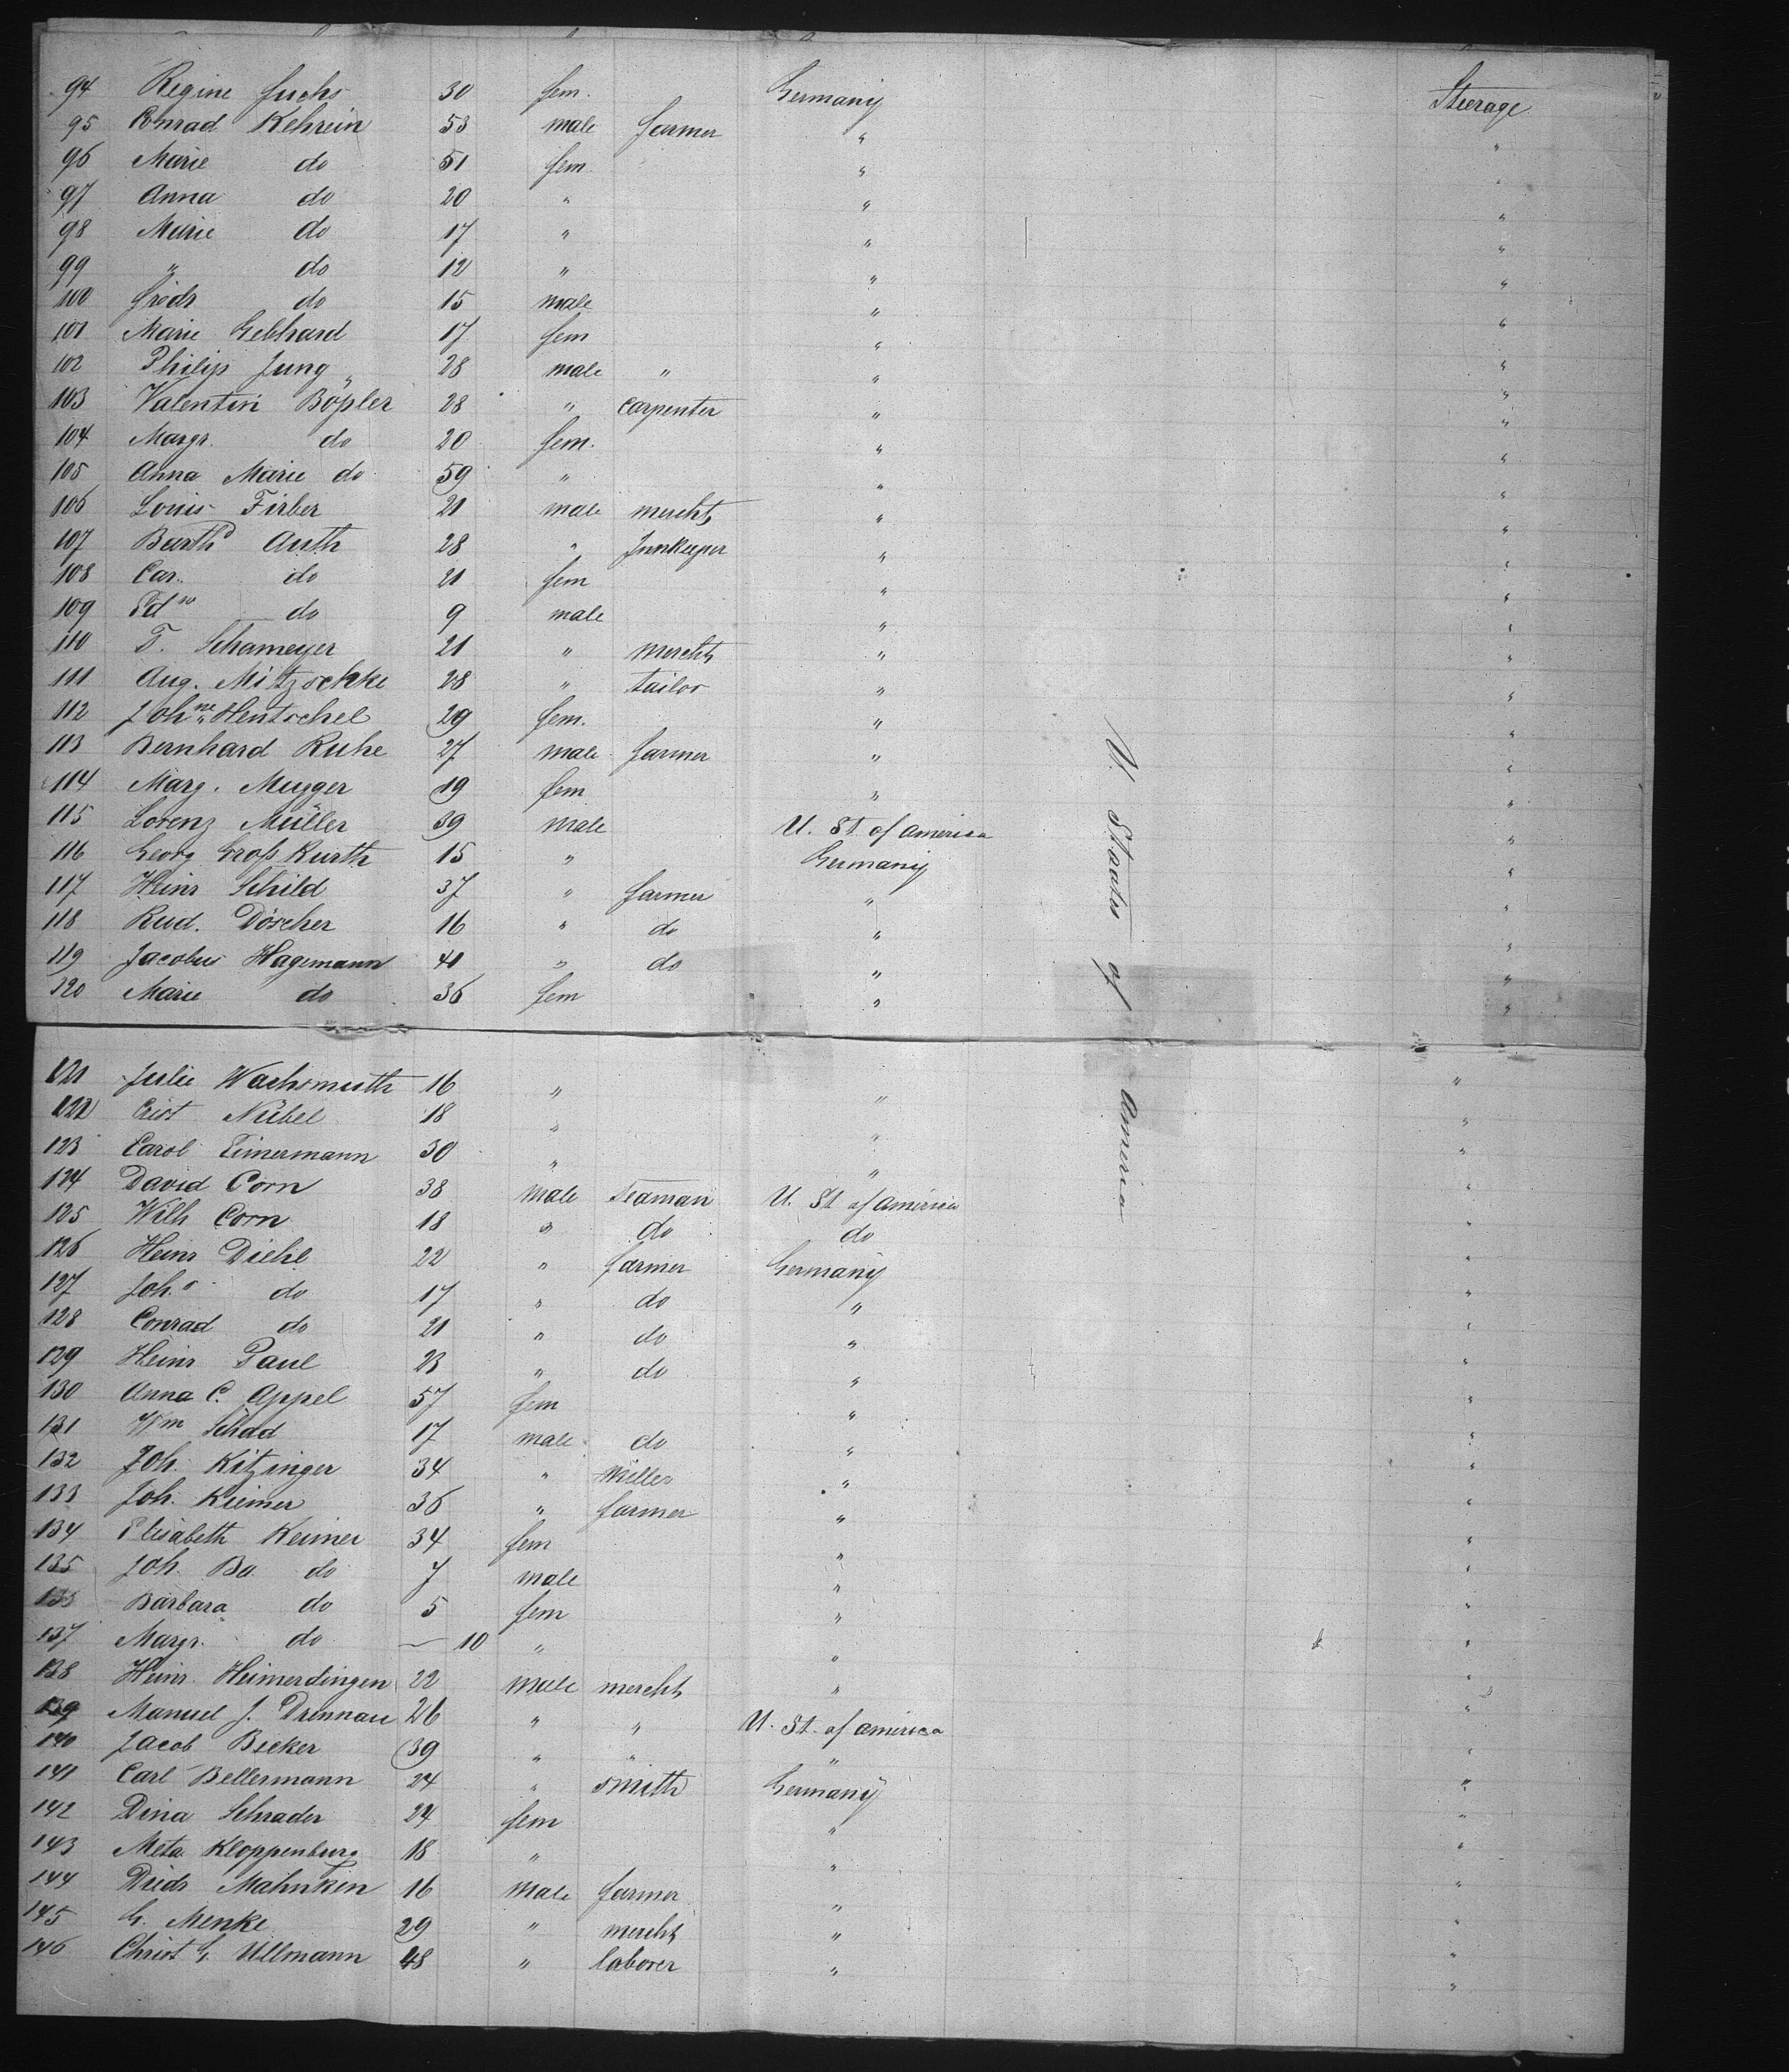 94 Regine Fuchs 30 fem. Germany Steerage
95 Conrad Kehrein 53 male farmer " "
96 Marie do 51 fem " "
97 Anna do 20 " " "
98 Marie do 17 " " "
99 " do 12 " " "
100 Friedr do 15 male " "
101 Marie Gebhard 17 fem " "
102 Philip Jung 28 male " " "
103 Valentin Böpler 28 " carpenter " "
104 Margr. do 20 fem. " "
105 Anna Marie do 59 " " "
106 Louis Firber 21 male mercht, " "
107 Barthd Auth 28 " Innkeeper " "
108 Car. do 21 fem " "
109 do 9 male " "
110 F. Schameyer 21 " mercht, " "
111 Aug. Mitzschke 28 " tailor " "
112 Johne Hentschel 29 fem. " "
113 Bernhard Ruhe 27 male farmer " "
114 Marg. Mugger 19 fem " "
115 Lorenz Müller 39 male U. St. of America "
116 Georg Groß Kurth 15 " Germany "
117 Heinr Schild 37 " farmer " "
118 Rud. Döscher 16 " do " "
119 Jacobus Hagemann 41 " do " "
120 Marie do 36 fem " "
U. Staates of America
121 Julie Wachsmuth 16 " " "
122 Crist Nübel 18 " " "
123 Carol Timermann 30 " " "
124 David Corn 38 male seaman U. St of America "
125 Wilh Corn 18 " do do "
126 Heinr Diehl 22 " farmer Germany "
127 Joh. do 17 " do " "
128 Conrad do 21 " do " "
129 Heinr Paul 23 " do " "
130 Anna C. Appel 57 fem " "
131 Wm Schad 17 male do " "
132 Joh. Kitzinger 34 " Miller " "
133 Joh. Kiemer 36 " farmer " "
134 Elisabeth Keimer 34 fem " "
135 Joh. Ba. do 7 male " "
135 Barbara do 5 fem " "
137 Margr. do — 10 " " "
138 Heinr. Heimerdingen 22 male mercht, " "
139 Manuel J. Drennau 26 " " U. St. of America "
140 Jacob Becker 39 " " " "
141 Carl Bellermann 24 " smith Germany "
142 Dina Schrader 24 fem " "
143 Meta Kloppenburg 18 " " "
144 Diedr Mahnken 16 male farmer " "
145 G. Menke 29 " mercht, " "
146 Christ G. Ullmann 48 " laborer " "